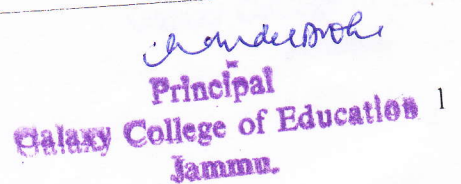 Principal
Galaxy College of Education 1
Jammu.